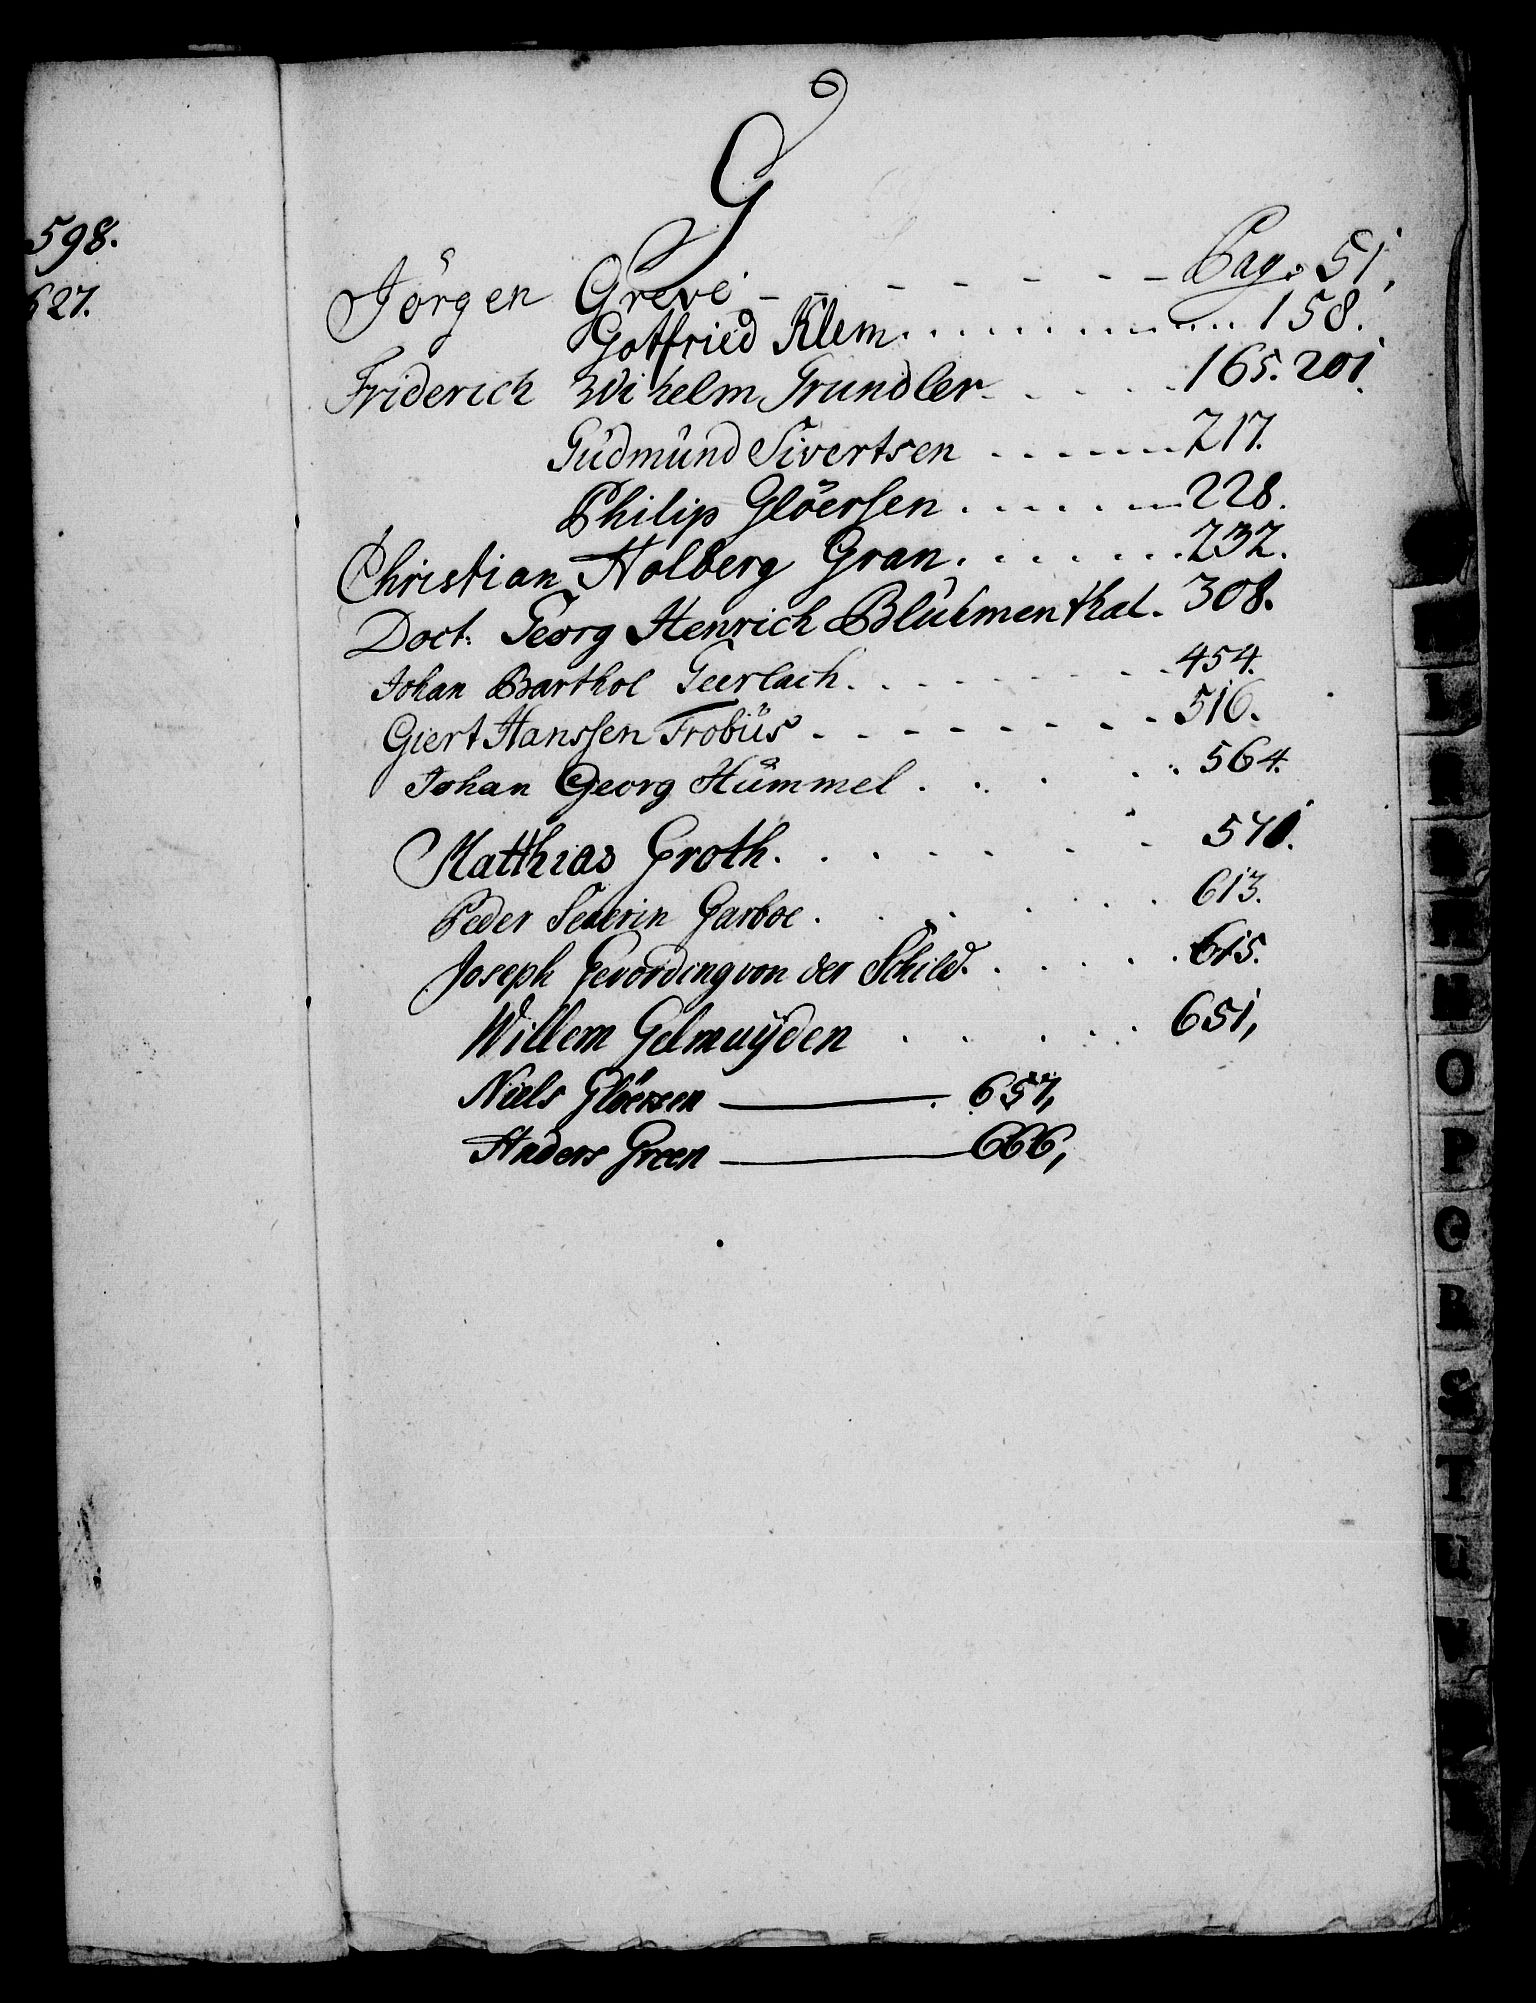 598.
627.
G
Jörgen Greve - - - - - - - Pag. 51,
Gotfried Klem . . . . . . . . . . . . 158.
Friderich Wihelm Grundler - . . . . 165. 201.
Gudmund Sivertsen . . . . . . . 217.
Philip Glöersen . . . . . . . 228.
Christian Holberg Gran . . . . . . . 232.
Doct: Georg Henrich Bluhmenthal . 308.
Johan Barthol Geerlach . . . . . . . 454.
Giert Hanssen Frobus . - - - - - - 516.
Johan Georg Hummel . . . . . 564.
Matthias Groth . . . . . . . 571.
Peder Severin Garboe . . . . . . 613.
Joseph Gevording von der Schild . . . . . 615.
Willem Gelmuÿden . . . . . 651,
Niels Glöersen ——— 657,
Anders Green ——— 666,
O
P
Q
R
S
T
U
V